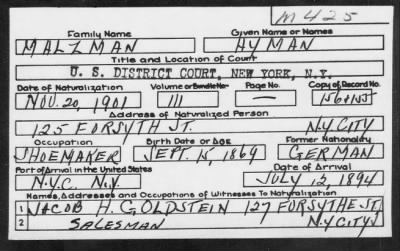 M425
Family Name Given Name or Names
MALZMAN HYMAN
Title and Location of Court
U. S. DISTRICT COURT, NEW YORK, N.Y.
Date of Naturalization Volume or Bundle No. Page No. Copy of Record No.
NOV. 20, 1901 111 —
Address of Naturalized Person
125 FORSYTH ST. N.Y. CITY
Occupation Birth Date or Age Former Nationality
SHOEMAKER SEPT. 15, 1869 GERMAN
Port of Arrival in the United States Date of Arrival
N.Y.C. N.Y. JULY 12, 1894
Names, Addresses and Occupations of Witnesses To Naturalization
1 JACOB H. GOLDSTEIN 127 FORSYTHE ST.
2 SALESMAN N.Y. CITY